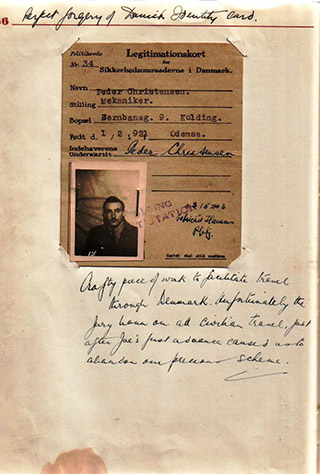 66
Perfect forgery of Danish Identity Card.
Politikreds
Nr. 34
Legitimationskort
for
Sikkerhedsomraaderne i Danmark.
Navn Peder Christensen.
Stilling Mekaniker.
Bopæl 9. Kolding.
Født d. 1/2 1921 Odense.
Indehaverens
Underskrift Peder Christensen
KOLDING
17
Kortet skal altid medføres.
Crafty piece of work to facilitate travel
through Denmark. Unfortunately the
on all civilian travel, just
after Joe's first advance caused us to
abandon our precious scheme.